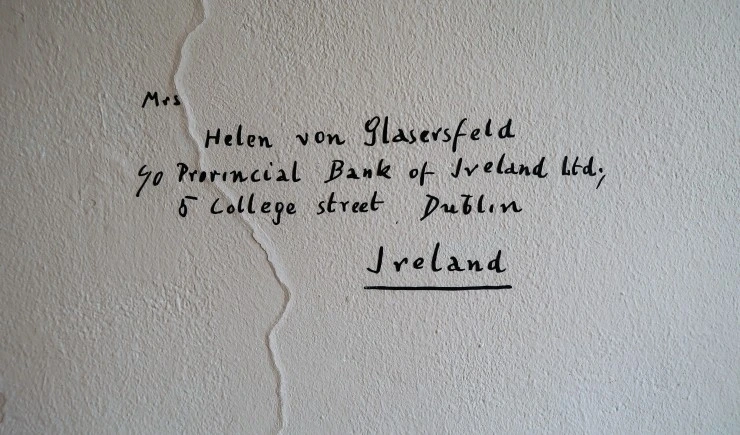 Mrs
Helen von Glasersfeld
c/o Provincial Bank of Ireland Ltd,
5 College street Dublin
Ireland